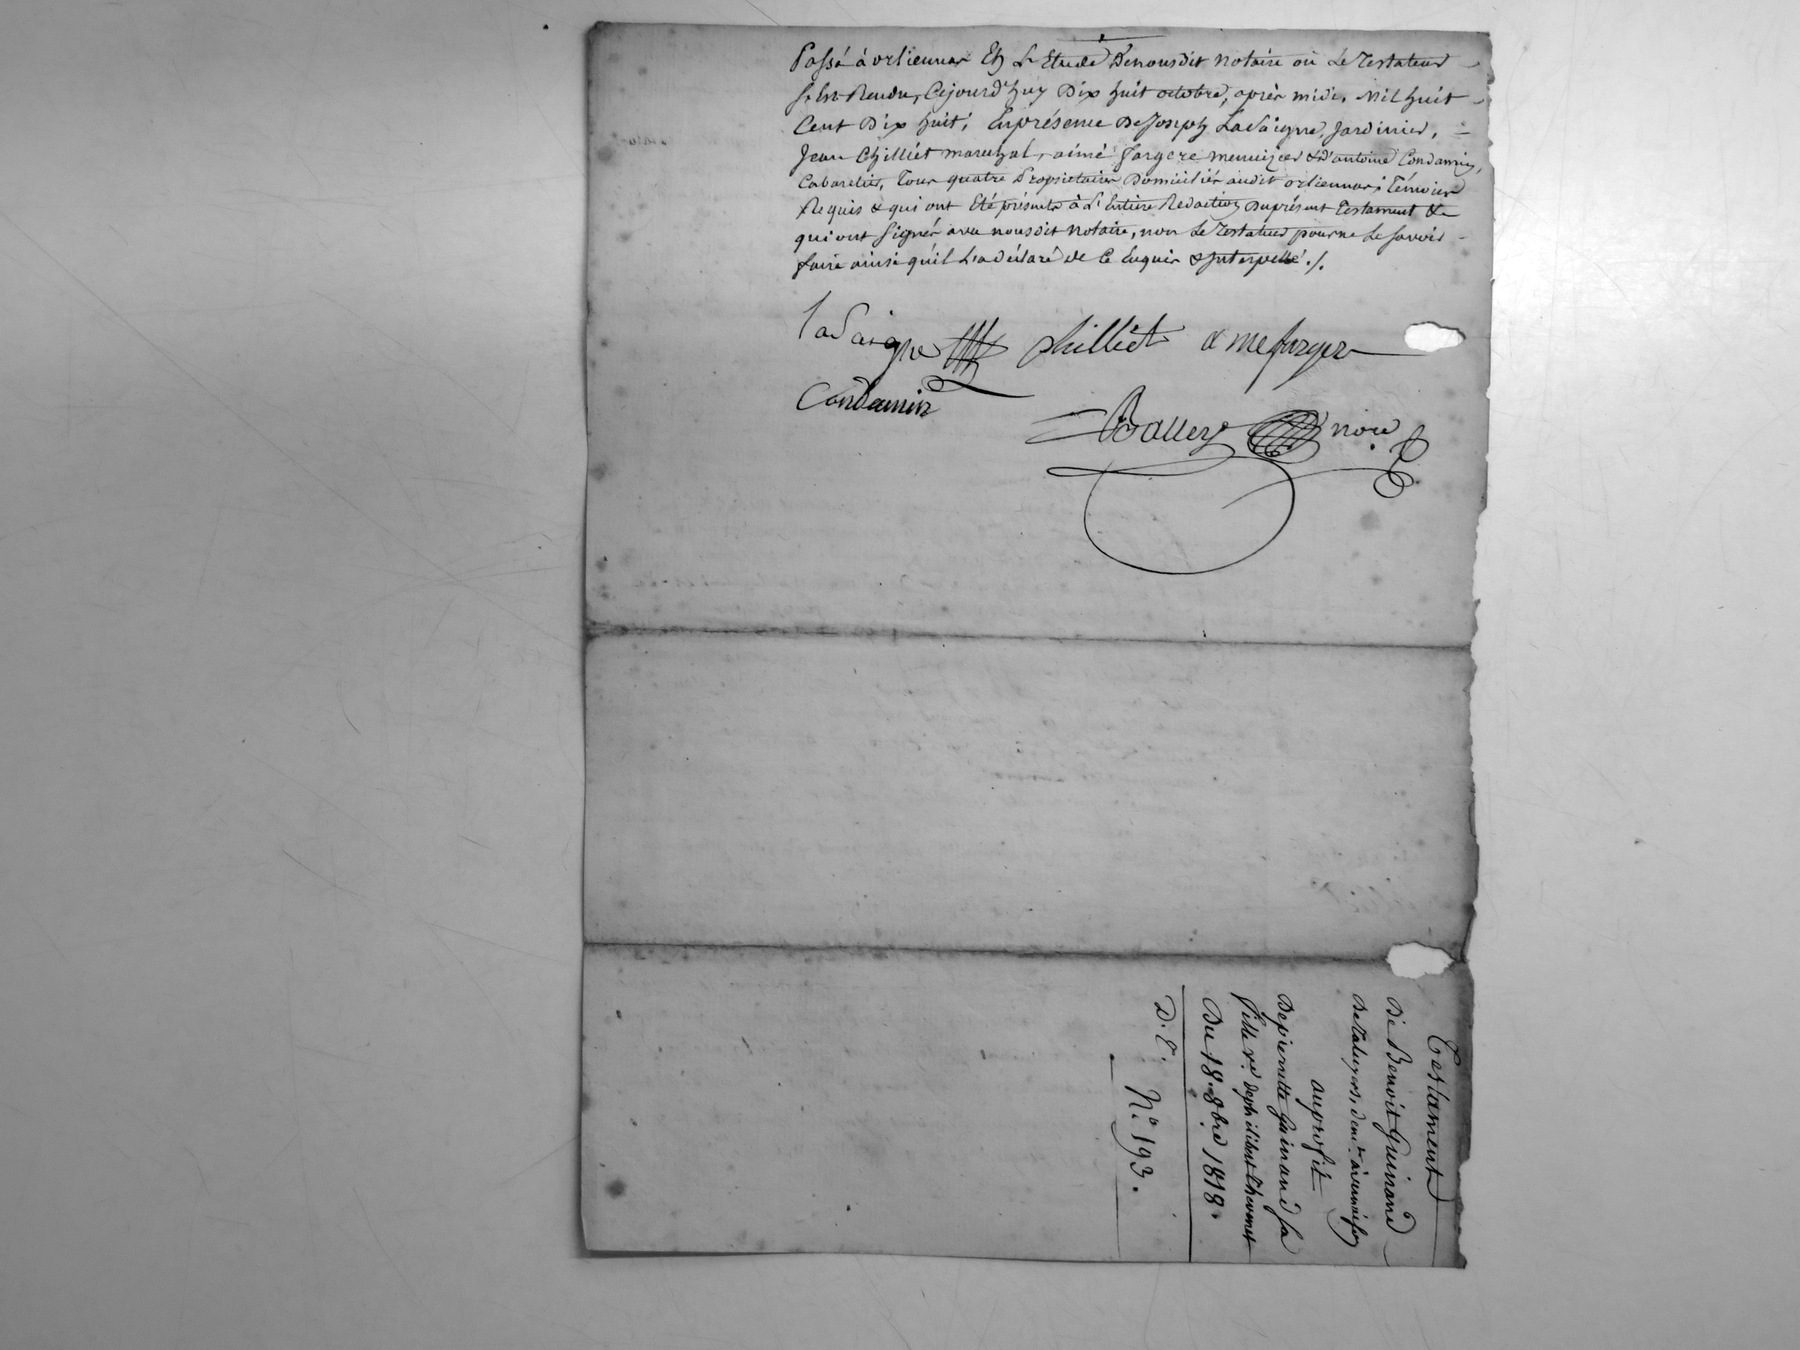 Passé à orlienas En L'Etude Denousdit Notaire où Le Testateur
s'Est Rendu, Cejourd'huy Dix huit octobre, après midi, Mil huit
Cent Dix huit; Enprésence De Joseph Lasaigne, Jardinier,
Jean Chilliet marechal, aimé fargere menuizier & D'antoine Condamin,
Cabaretier, Tous quatre Propriétaires Domiciliés audit orlienas; Témoins
Requis & qui ont Eté présents à L'Entière Redaction Duprésent Testament &
qui ont Signés avec nousdit Notaire, non Le Testateur pour ne Le savoir
faire ainsi qu'il L'a déclaré de Ce Enquis & Interpellé ./.
laSaigne Chilliet amefargere
Condamin
Ballery nore
Testament
De Benoit Guinand
De Taluyers, demt. à
auprofit
Depierrette Guinand sa
fille ve. dephilibert Thevenet
Du 18. 8bre 1818.
D. E. N.° 193.